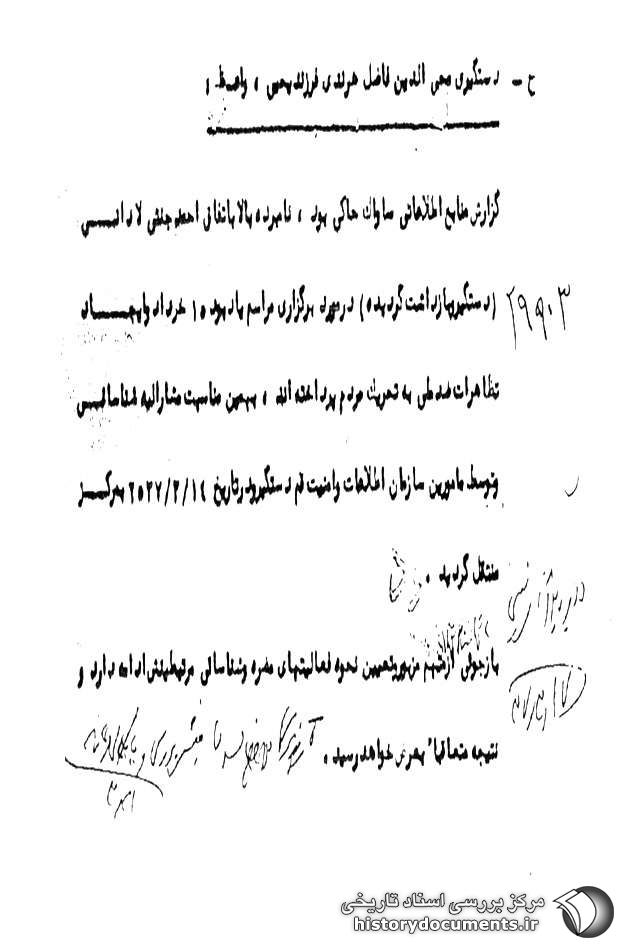 ح - دستگیری محی الدین فاضل هرندی فرزند یحیی ، واعظ :
گزارش منابع اطلاعاتی ساواك حاکی بود ، نامبرده بالا باتفاق احمد جنتی لادانـــی
(دستگیر و بازداشت گردیده) در مورد برگزاری مراسم یادبود ۱۵ خرداد و ایجـــــاد
۲۹۵۰۳
تظاهرات ضد ملی به تحریك مردم پرداخته اند ، بهمین مناسبت مشارالیه شناسائـــی
و توسط مامورین سازمان اطلاعات و امنیت قم دستگیر و در تاریخ ۲۵۳۷/۳/۱۴ بمرکـــز
منتقل گردید .
بازجوئی از متهم مزبور و تعیین نحوه فعالیتهای مضره و شناسائی مرتبطینش ادامه دارد و
نتیجه متعاقباً بعرض خواهد رسید .
مرکز بررسی اسناد تاریخی
historydocuments.ir